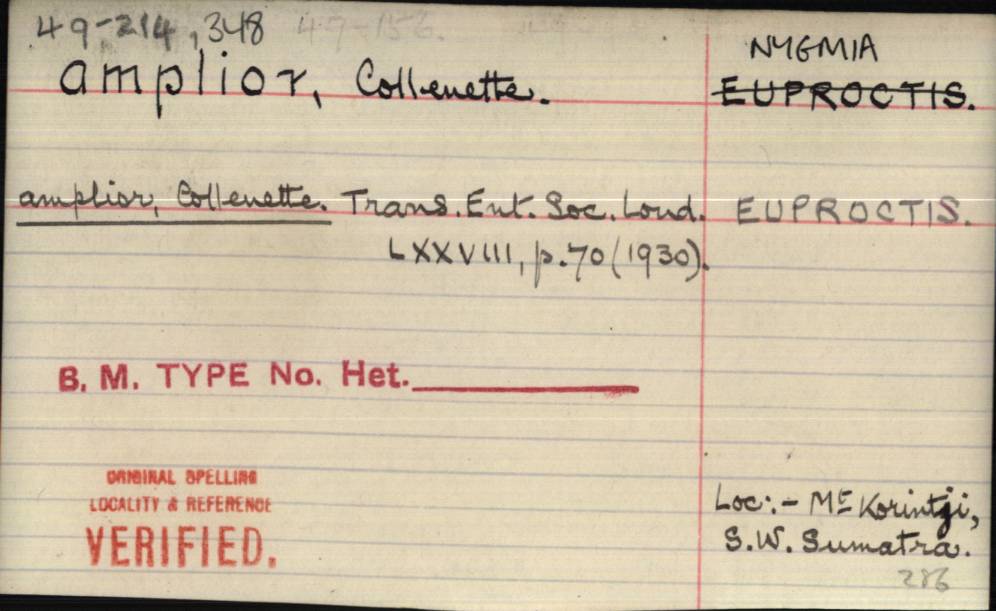 49-214, 348 47-156.
NYGMIA
amplior, Collenette. EUPROCTIS.
amplior, Collenette. Trans. Ent. Soc. Lond. EUPROCTIS.
LXXVIII, p. 70 (1930).
B. M. TYPE No. Het.
ORIGINAL SPELLING
LOCALITY & REFERENCE
VERIFIED.
Loc:- Mt Korintji,
S.W. Sumatra.
286